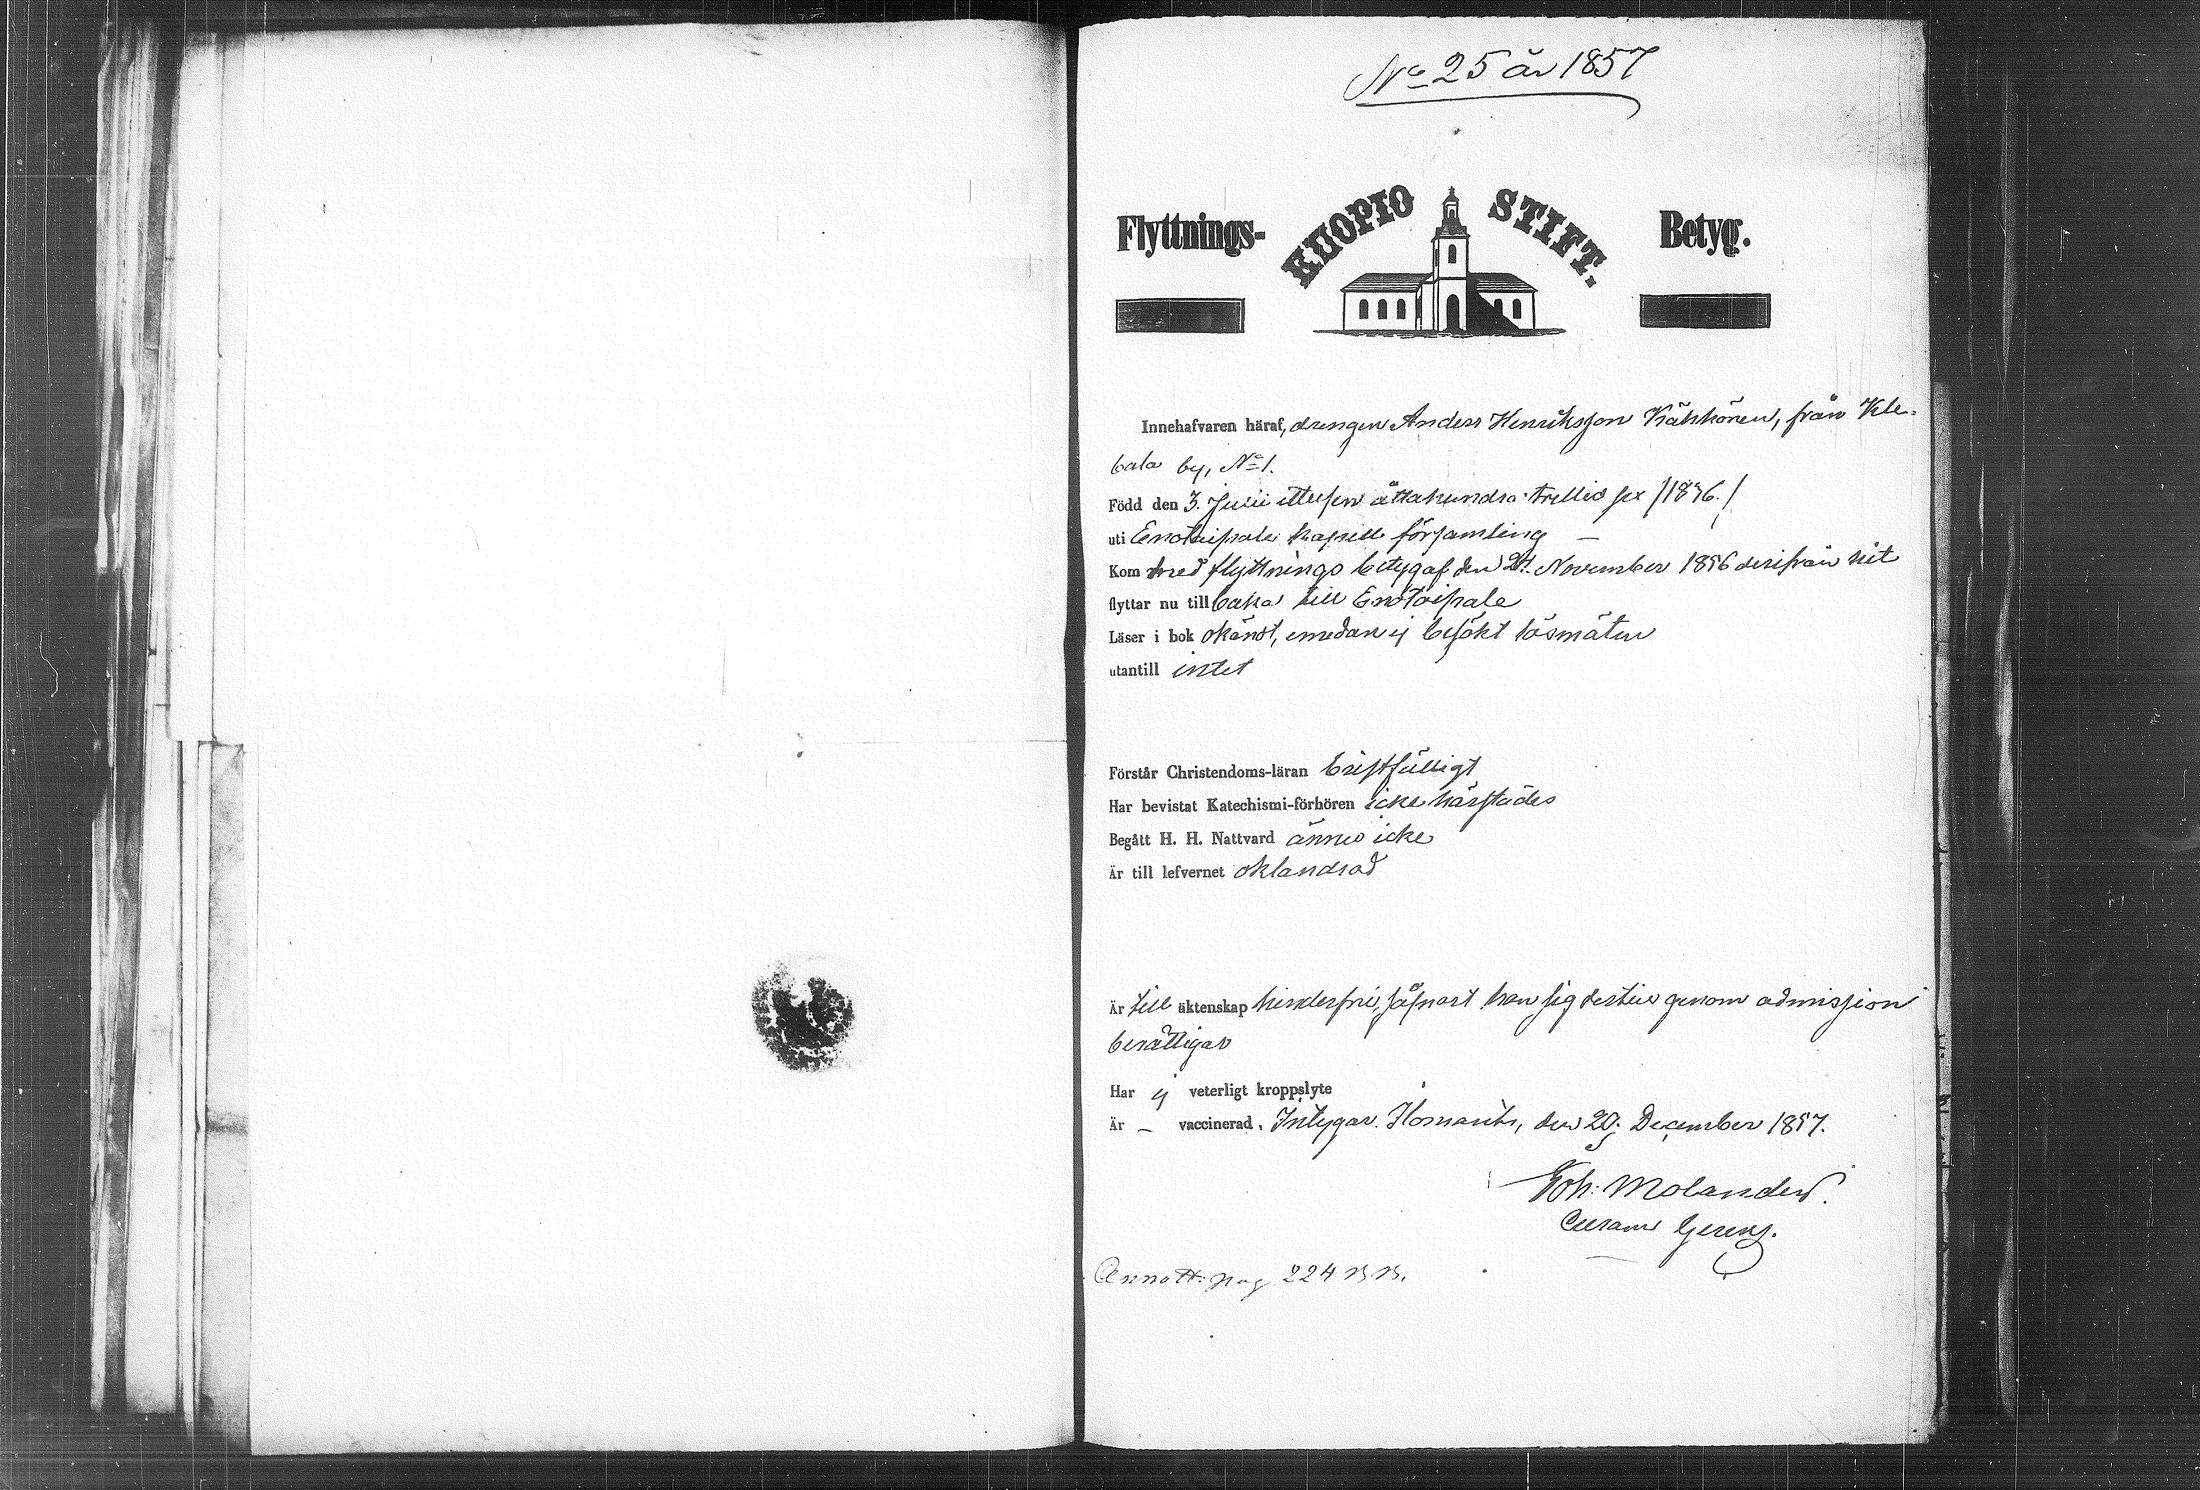 No 25 år 1857
Flyttnings- KUOPIO STIFT. Betyg.
Innehafvaren häraf, drengen Anders Henriksson Kähkönen, från Kle-
bala by, No 1.
Född den 3. Juni ettusen åttahundra trettio sex /1836./
uti Enotaipale kapell församling —
Kom med flyttnings betyg af den 24. November 1856 derifrån hit
flyttar nu till baka till Enotaipale
Läser i bok okändt, emedan ej besökt läsmöten
utantill intet
Förstår Christendoms-läran bristfälligt
Har bevistat Katechismi-förhören icke härstädes
Begått H. H. Nattvard ännu icke
Är till lefvernet oklandrad
Är till äktenskap hinderfri, såsnart han sig dertill genom admission
berättigar
Har ej veterligt kroppslyte
Är — vaccinerad. Intygar. Ilomants, den 29. December 1857.
Joh: Molander.
Curam Gerens.
Annott: pag 224 B.B.